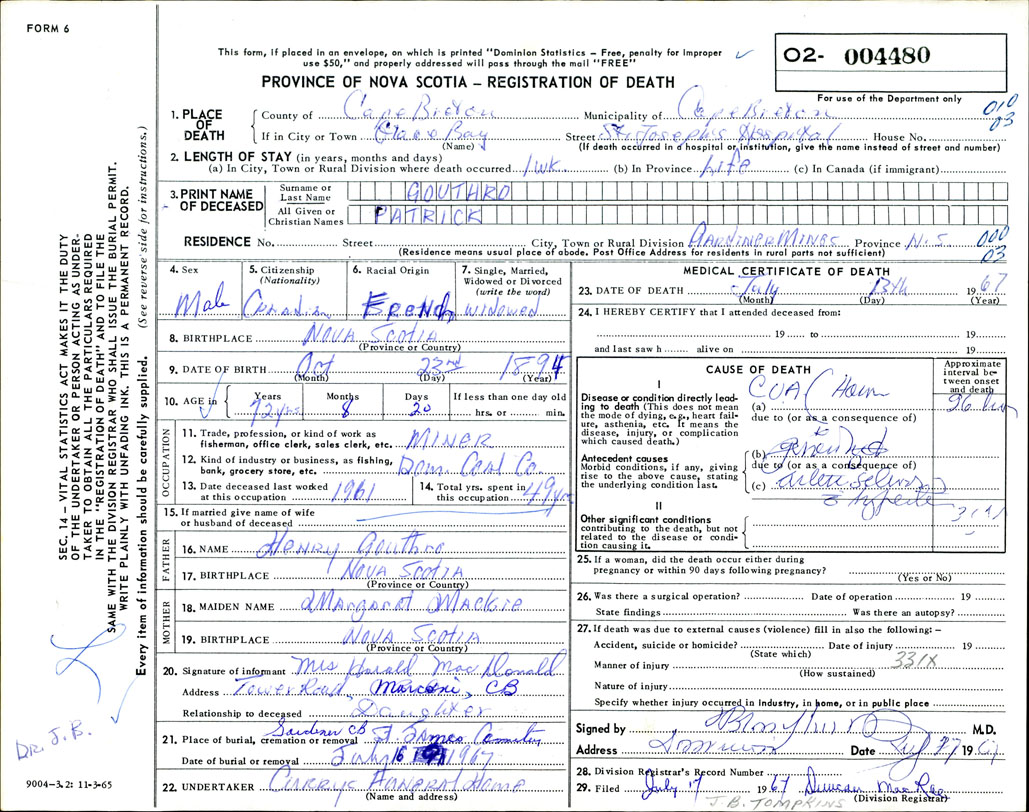 FORM 6
This form, if placed in an envelope, on which is printed "Dominion Statistics – Free, penalty for improper
use $50," and properly addressed will pass through the mail "FREE"
02- 004480
For use of the Department only
PROVINCE OF NOVA SCOTIA – REGISTRATION OF DEATH
010
03
1. PLACE OF DEATH
County of Cape Breton Municipality of Cape Breton
If in City or Town Glace Bay Street St. Joseph's Hospital House No.
(Name) (If death occurred in a hospital or institution, give the name instead of street and number)
2. LENGTH OF STAY (in years, months and days)
(a) In City, Town or Rural Division where death occurred 1 wk. (b) In Province Life (c) In Canada (if immigrant)
3. PRINT NAME OF DECEASED
Surname or Last Name GOUTHRO
All Given or Christian Names PATRICK
RESIDENCE No. Street City, Town or Rural Division Gardiner Mines Province N.S. 000
03
(Residence means usual place of abode. Post Office Address for residents in rural parts not sufficient)
4. Sex Male
5. Citizenship (Nationality) Canadian
6. Racial Origin French
7. Single, Married, Widowed or Divorced (write the word) widowed
8. BIRTHPLACE Nova Scotia
(Province or Country)
9. DATE OF BIRTH Oct 23rd 1894
(Month) (Day) (Year)
10. AGE in Years 72 yrs Months 8 Days 20 If less than one day old hrs. or min.
OCCUPATION
11. Trade, profession, or kind of work as fisherman, office clerk, sales clerk, etc. MINER
12. Kind of industry or business, as fishing, bank, grocery store, etc. Dom. Coal Co.
13. Date deceased last worked at this occupation 1961
14. Total yrs. spent in this occupation 49 yrs
15. If married give name of wife or husband of deceased
FATHER
16. NAME Henry Gouthro
17. BIRTHPLACE Nova Scotia
(Province or Country)
MOTHER
18. MAIDEN NAME Margaret Mackie
19. BIRTHPLACE Nova Scotia
(Province or Country)
20. Signature of informant Mrs Harald MacDonald
Address Tower Road, Marconi, CB
Relationship to deceased Daughter
Gardiner CB
21. Place of burial, cremation or removal St James Cemetery
Date of burial or removal July 16 1967
22. UNDERTAKER Curry's Funeral Home
(Name and address)
MEDICAL CERTIFICATE OF DEATH
23. DATE OF DEATH July 13th 1967
(Month) (Day) (Year)
24. I HEREBY CERTIFY that I attended deceased from:
19 to 19
and last saw h alive on 19
CAUSE OF DEATH
Approximate interval between onset and death
I
Disease or condition directly leading to death (This does not mean the mode of dying, e.g., heart failure, asthenia, etc. It means the disease, injury, or complication which caused death.)
(a) CVA
due to (or as a consequence of)
Antecedent causes
Morbid conditions, if any, giving rise to the above cause, stating the underlying condition last.
(b)
due to (or as a consequence of)
(c)
II
Other significant conditions contributing to the death, but not related to the disease or condition causing it.
25. If a woman, did the death occur either during pregnancy or within 90 days following pregnancy?
(Yes or No)
26. Was there a surgical operation? Date of operation 19
State findings Was there an autopsy?
27. If death was due to external causes (violence) fill in also the following: –
Accident, suicide or homicide? Date of injury 19
(State which) 331X
Manner of injury
(How sustained)
Nature of injury
Specify whether injury occurred in Industry, in home, or in public place
Signed by M.D.
Address Dominion Date 19
28. Division Registrar's Record Number
29. Filed July 17 1967 Duncan MacRae
(Division Registrar)
J.B. TOMPKINS
SEC. 14 – VITAL STATISTICS ACT MAKES IT THE DUTY
OF THE UNDERTAKER OR PERSON ACTING AS UNDER-
TAKER TO OBTAIN ALL THE PARTICULARS REQUIRED
IN THE "REGISTRATION OF DEATH" AND TO FILE THE
SAME WITH THE DIVISION REGISTRAR WHO SHALL ISSUE THE BURIAL PERMIT.
WRITE PLAINLY WITH UNFADING INK. THIS IS A PERMANENT RECORD.
Every item of information should be carefully supplied. (See reverse side for instructions.)
DR. J.B.
9004-3.2: 11-3-65